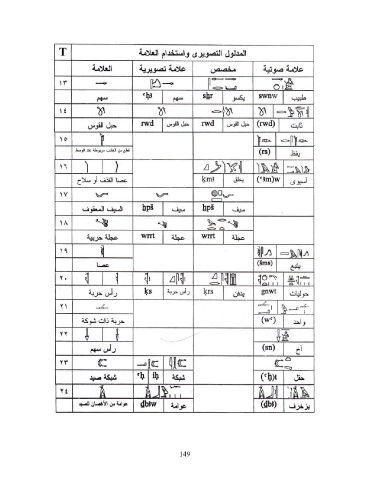 T المدلول التصويرى واستخدام العلامة
العلامة علامة تصويرية مخصص علامة صوتية
١٣
سهم ꜥḥꜣ سهم يكسو swnw طبيب
١٤
حبل القوس rwd حبل القوس rwd حبل القوس (rwd) ثابت
١٥
(rs) يقظ
١٦
عصا القذف أو سلاح يخلق أسيوى
١٧
السيف المعقوف ḫpš سيف ḫpš سيف
١٨
عجلة حربية wrrt عجلة wrrt عجلة
١٩
عصا (šms) يتبع
٢٠
رأس حربة ḳs رأس حربة ḳrs يدفن gnwt حوليات
٢١
حربة ذات شوكة (wꜥ) واحد
٢٢
رأس سهم (sn) أخ
٢٣
شبكة صيد ꜥḥ iḥ شبكة (ꜥḥ)t حقل
٢٤
عوامة من الأغصان للصيد ḏbꜣw عوامة (ḏbꜣ) يزخرف
149